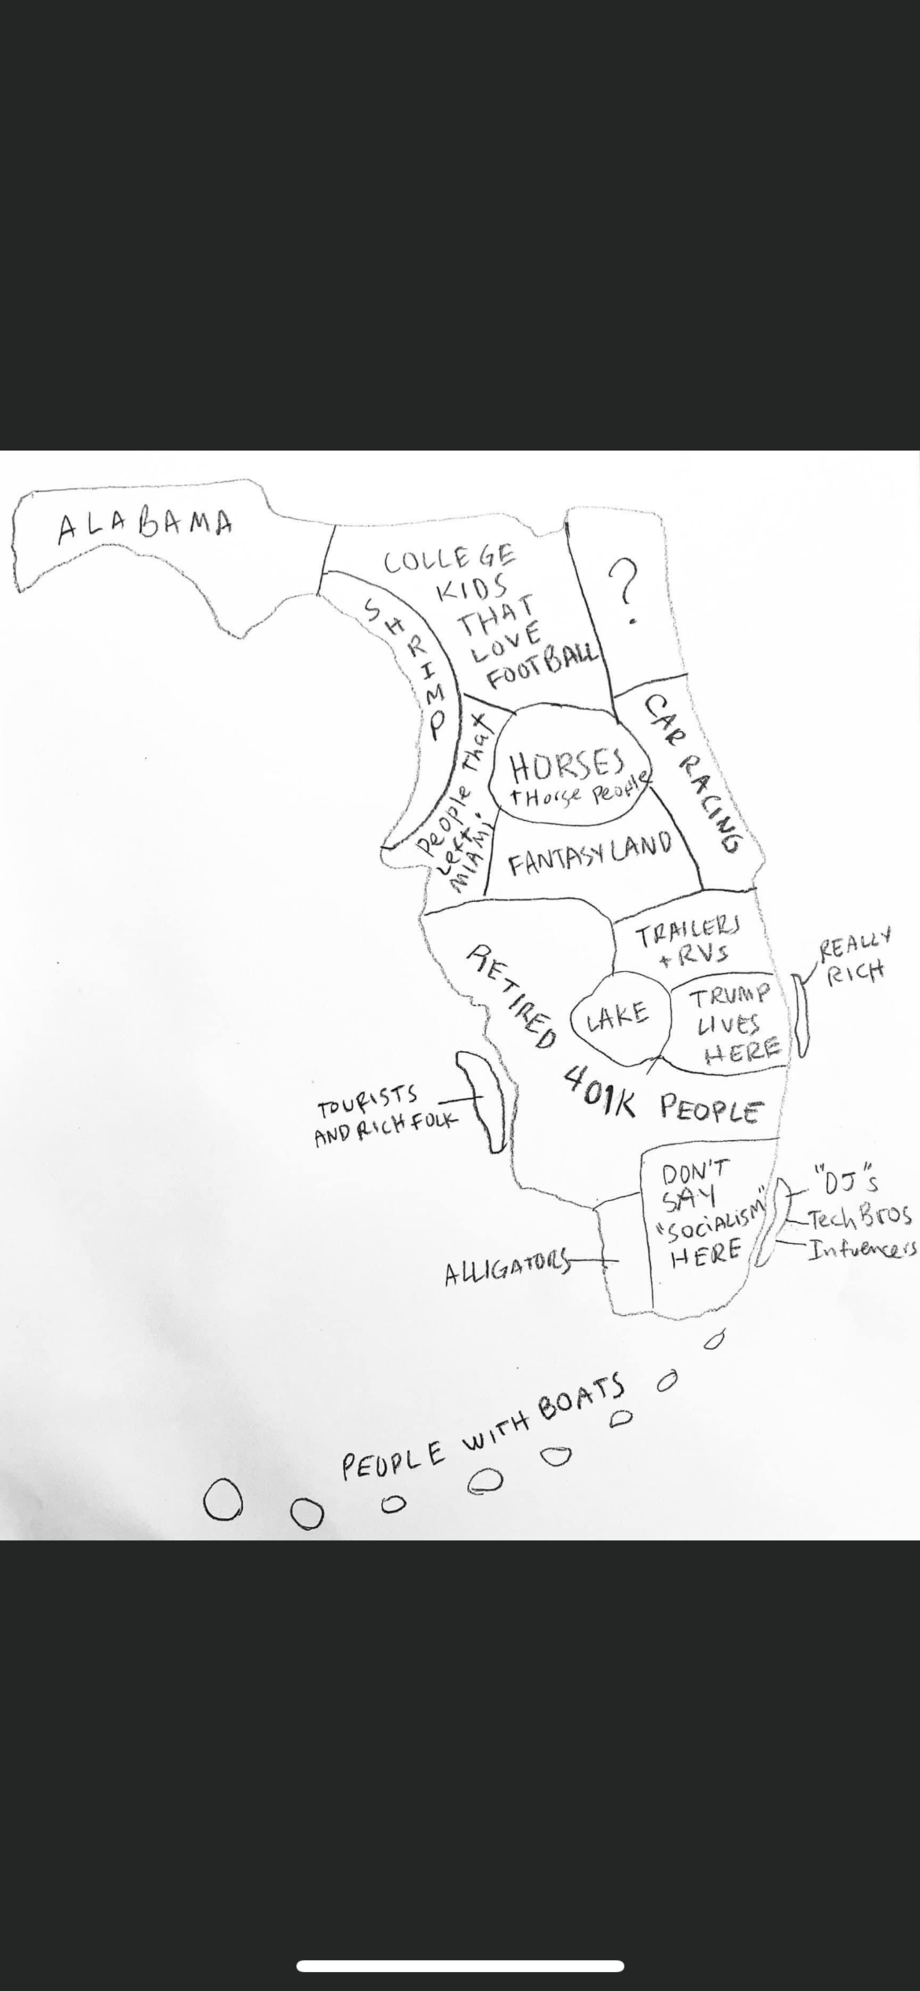 ALABAMA
COLLEGE
KIDS
THAT
LOVE
FOOTBALL
?
SHRIMP
CAR RACING
People That
Left
MIAMI
HORSES
+ Horse People
FANTASYLAND
TRAILERS
+ RVs
REALLY
RICH
RETIRED
401K PEOPLE
LAKE
TRUMP
LIVES
HERE
TOURISTS
AND RICH FOLK
DON'T
SAY
"SOCIALISM"
HERE
"DJ"s
Tech Bros
Infuencers
ALLIGATORS
PEOPLE WITH BOATS